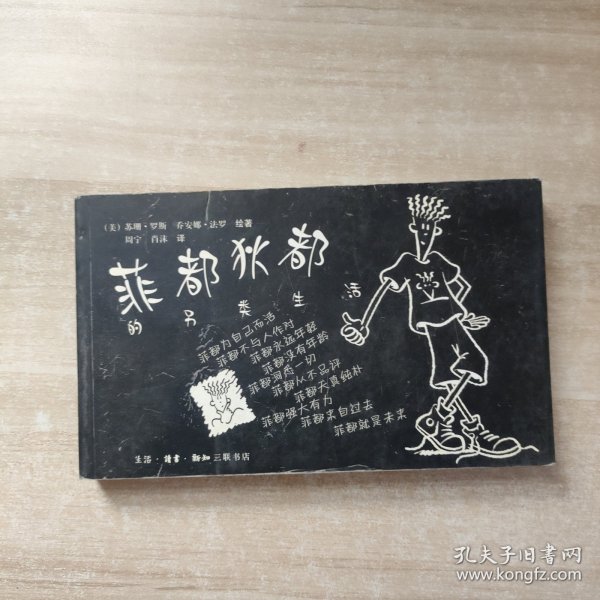 (美)苏珊·罗斯 乔安娜·法罗 绘著
周宁 肖沫 译
菲都狄都
的另类生活
菲都为自己而活
菲都不与人作对
菲都永远年轻
菲都没有年龄
菲都洞悉一切
菲都从不品评
菲都天真纯朴
菲都强大有力
菲都来自过去
菲都就是未来
生活·讀書·新知三联书店
孔夫子旧书网
www.kongfz.com